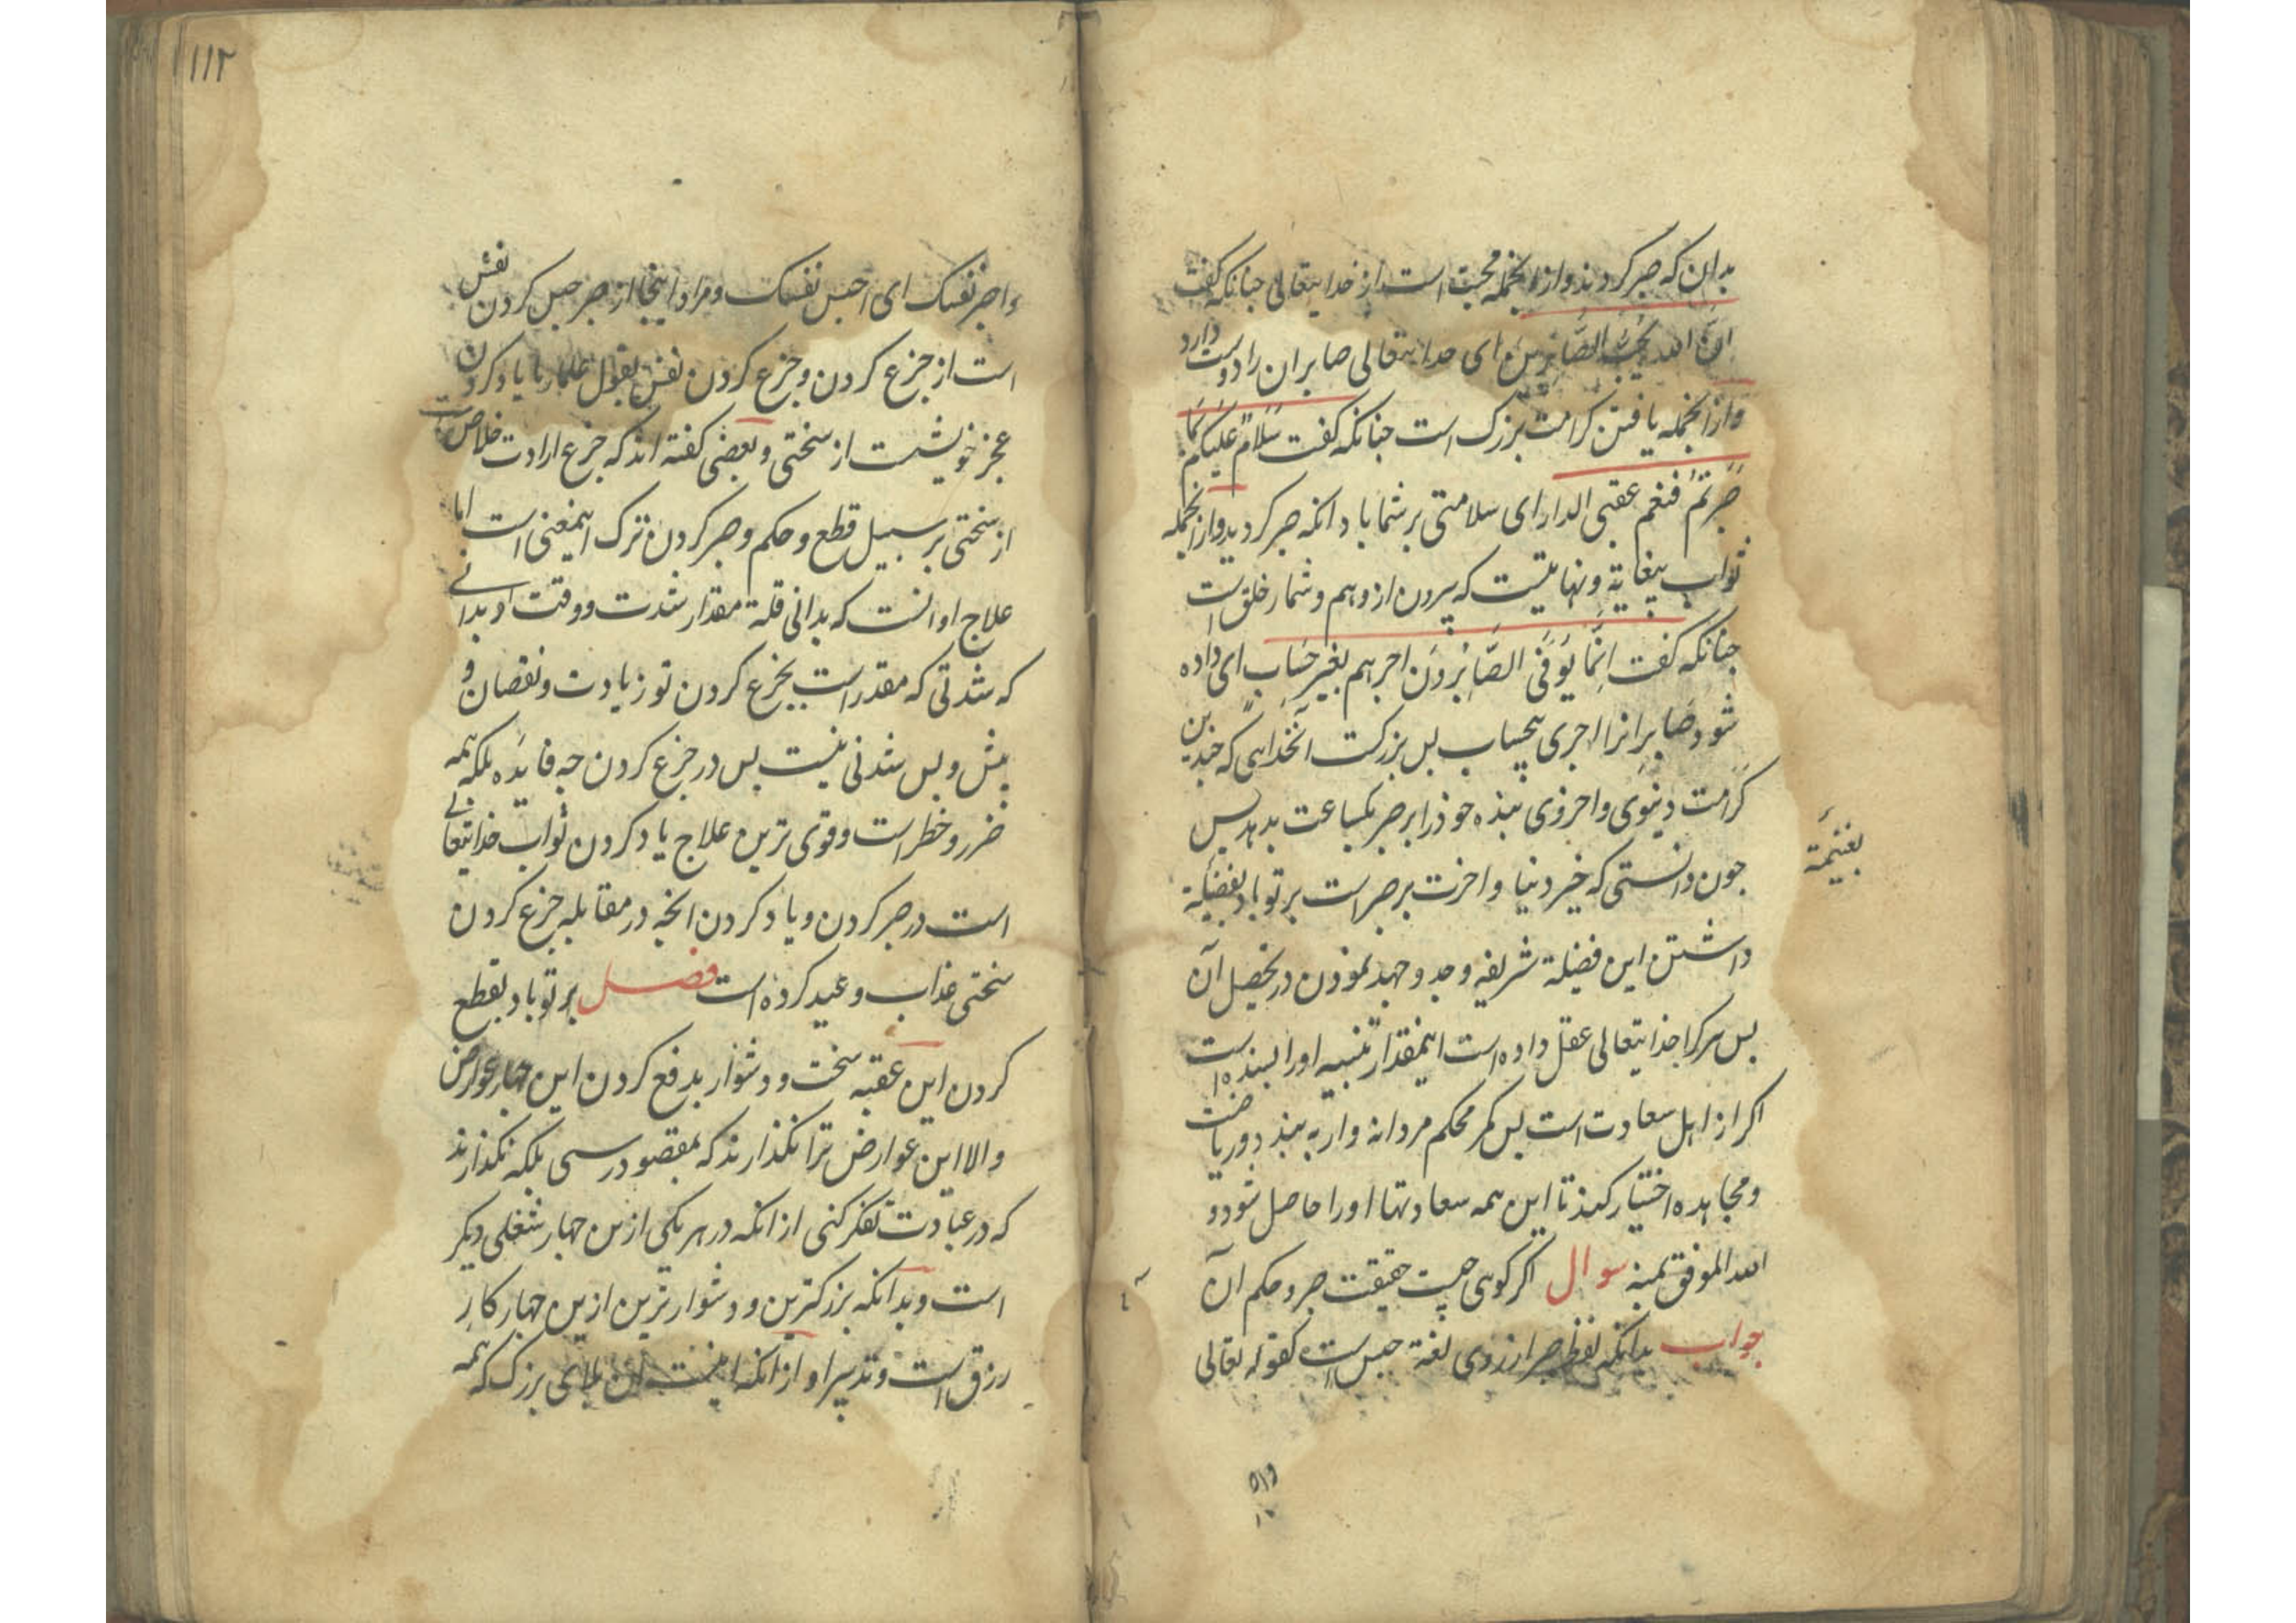 بدان که صبر کردند و از انجمله محبت است از خدایتعالی جنانکه کفت
انّ الله یحبّ الصّابرین ای خدایتعالی صابران را دوست دارد
و از انجمله یافتن کرامت بزرک است جنانکه کفت سَلَامٌ علیکم بما
صَبَرتُم فنعم عقبی الدار ای سلامتی بر شما باد انکه صبر کردید و از انجمله
ثواب بیغایة و نهایتست که بیرون از وهم و شمار خلق است
جنانکه کفت اِنّمَا یُوَفَّی الصَّابِرُونَ اجرهم بغیر حساب ای داده
شود صابرانرا اجری بیحساب بس بزرکست انخدایی که جندین
کرامت دنیوی و اخروی بنده خوذ را بر صبر یکساعت بدهد بس
جون دانستی که خیر دنیا و اخرت بر صبر است بر تو باد بفضیلة
بغنیمة
داشتن این فضیلة شریفه و جد و جهد نموذن در تحصیل آن
بس هر کرا خذایتعالی عقل داده است اینمقدار تنبیه او را بسنده است
اکر از اهل سعادت است بس کمر محکم مردانه وار به ببندد و ریاضت
و مجاهده اختیار کند تا این همه سعادتها او را حاصل شود و
الله الموفق بمنه سوال اکر کوئی جیست حقیقت صبر و حکم آن
جواب بدانکه لفظ صبر از روی لغة حبس است کقوله تعالی
۱۱۲
واصبر نفسک ای احبس نفسک و مراد اینجا از صبر حبس کردن نفس
است از جزع کردن و جزع کردن نفس بقول علما ریا یاد کردن
عجز خویشست از سختی و بعضی کفته اند که جزع ارادت خلاص است
از سختی بر سبیل قطع و حکم و صبر کردن ترک اینمعنی است اما
علاج او انست که بدانی قلة مقدار شدت و وقت او بدانی
که شدتی که مقدر است بجزع کردن تو زیادت و نقصان و
بیش و بس شدنی نیست بس در جزع کردن جه فایده بلکه همه
ضرر و خطر است و قوی ترین علاج یاد کردن ثواب خدایتعالی
است در صبر کردن و یاد کردن انجه در مقابله جزع کردن
سختی عذاب وعید کرده است فصل بر تو باد بقطع
کردن این عقبه سخت و دشوار بدفع کردن این جهار عوارض
و الا این عوارض ترا نکذارند که بمقصود رسی بلکه نکذارند
که در عبادت تفکر کنی از انکه در هر یکی ازین جهار شغلی دیکر
است و بدانکه بزرکترین و دشوارترین ازین جهار کار
رزق است و تدبیر او از انکه اینست ان بلای بزرک که همه